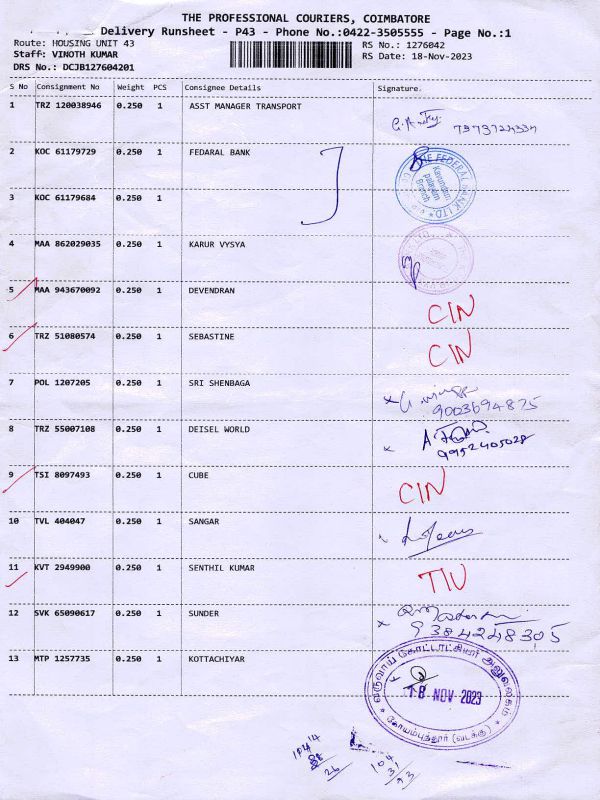 THE PROFESSIONAL COURIERS, COIMBATORE
Delivery Runsheet - P43 - Phone No.:0422-3505555 - Page No.:1
Route: HOUSING UNIT 43
RS No.: 1276042
Staff: VINOTH KUMAR
RS Date: 18-Nov-2023
DRS No.: DCJB127604201
S No Consignment No Weight PCS Consignee Details Signature.
1 TRZ 120038946 0.250 1 ASST MANAGER TRANSPORT
2 KOC 61179729 0.250 1 FEDARAL BANK
THE FEDERAL BANK LTD
Kavundam
palayam
Branch
3 KOC 61179684 0.250 1
4 MAA 862029035 0.250 1 KARUR VYSYA
5 MAA 943670092 0.250 1 DEVENDRAN
CIN
6 TRZ 51080574 0.250 1 SEBASTINE
CIN
7 POL 1207205 0.250 1 SRI SHENBAGA
9003694875
8 TRZ 55007108 0.250 1 DEISEL WORLD
9952405028
9 TSI 8097493 0.250 1 CUBE
CIN
10 TVL 404047 0.250 1 SANGAR
11 KVT 2949900 0.250 1 SENTHIL KUMAR
TIU
12 SVK 65090617 0.250 1 SUNDER
9384248305
13 MTP 1257735 0.250 1 KOTTACHIYAR
வருவாய் கோட்டாட்சியர் அலுவலகம்
18 NOV 2023
கோயம்புத்தூர் (வடக்கு)